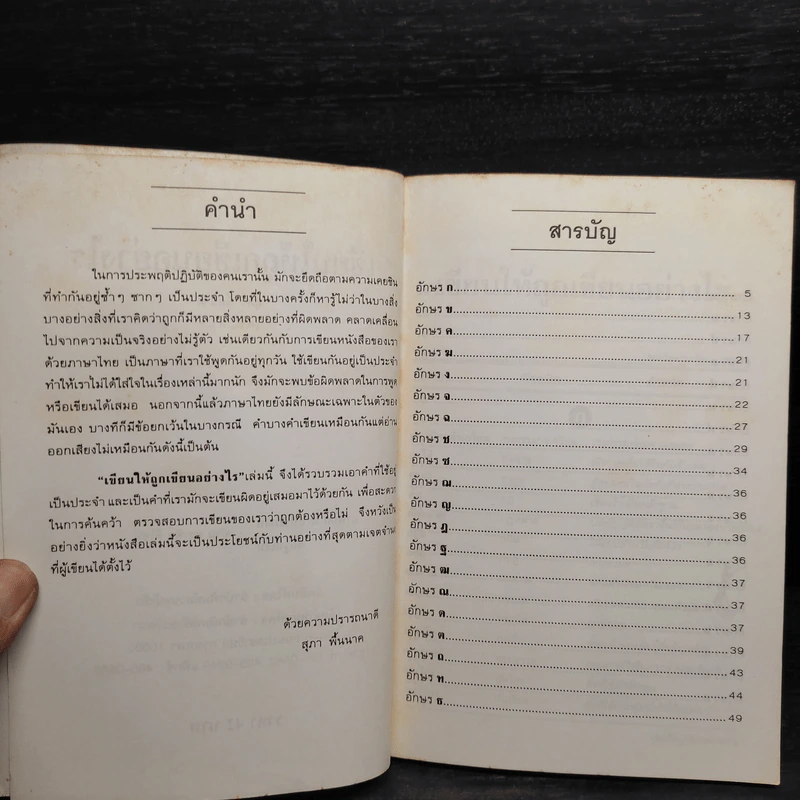 คำนำ
ในการประพฤติปฏิบัติของคนเรานั้น มักจะยึดถือตามความเคยชิน
ที่ทำกันอยู่ซ้ำๆ ซากๆ เป็นประจำ โดยที่ในบางครั้งก็หารู้ไม่ว่าในบางสิ่ง
บางอย่างสิ่งที่เราคิดว่าถูกก็มีหลายสิ่งหลายอย่างที่ผิดพลาด คลาดเคลื่อน
ไปจากความเป็นจริงอย่างไม่รู้ตัว เช่นเดียวกันกับการเขียนหนังสือของเรา
ด้วยภาษาไทย เป็นภาษาที่เราใช้พูดกันอยู่ทุกวัน ใช้เขียนกันอยู่เป็นประจำ
ทำให้เราไม่ได้ใส่ใจในเรื่องเหล่านี้มากนัก จึงมักจะพบข้อผิดพลาดในการพูด
หรือเขียนได้เสมอ นอกจากนี้แล้วภาษาไทยยังมีลักษณะเฉพาะในตัวของ
มันเอง บางทีก็มีข้อยกเว้นในบางกรณี คำบางคำเขียนเหมือนกันแต่อ่าน
ออกเสียงไม่เหมือนกันดังนี้เป็นต้น
"เขียนให้ถูกเขียนอย่างไร"เล่มนี้ จึงได้รวบรวมเอาคำที่ใช้อยู่
เป็นประจำ และเป็นคำที่เรามักจะเขียนผิดอยู่เสมอมาไว้ด้วยกัน เพื่อสะดวก
ในการค้นคว้า ตรวจสอบการเขียนของเราว่าถูกต้องหรือไม่ จึงหวังเป็น
อย่างยิ่งว่าหนังสือเล่มนี้จะเป็นประโยชน์กับท่านอย่างที่สุดตามเจตจำนง
ที่ผู้เขียนได้ตั้งไว้
ด้วยความปรารถนาดี
สุภา พื้นนาค
สารบัญ
อักษร ก 5
อักษร ข 13
อักษร ค 17
อักษร ฆ 21
อักษร ง 21
อักษร จ 22
อักษร ฉ 27
อักษร ช 29
อักษร ซ 34
อักษร ฌ 36
อักษร ญ 36
อักษร ฎ 36
อักษร ฐ 36
อักษร ฒ 37
อักษร ณ 37
อักษร ด 37
อักษร ต 39
อักษร ถ 43
อักษร ท 44
อักษร ธ 49